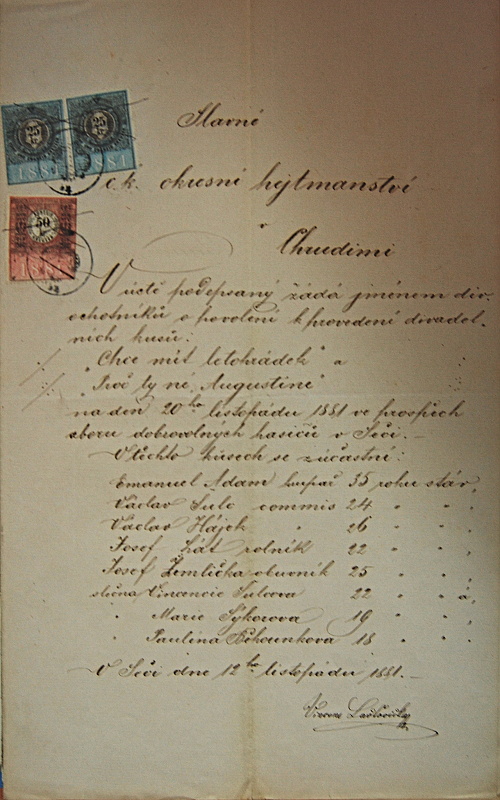 25
25
1881
1881
50
Slavné
c. k. okresní hejtmanství
v
Chrudimi
V úctě podepsaný žádá jménem div.
ochotníků o povolení k provedení divadel-
ních kusů:
"Chce mít letohrádek" a
"Proč ty né, Augustine"
na den 20ho listopádu 1881 ve prospěch
sboru dobrovolných hasičů v Seči. –
V těchto kusech se zúčastní:
Emanuel Adam kupař 35 roků stár,
Václav Šulc commis 24 " " ,
Václav Hájek " 26 " " ,
Josef rolník 22 " " ,
Josef Žemlička obuvník 25 " " ,
slečna Vincencie Šulcova 22 " " á,
" Marie Sýkorová 19 " " ,
" Paulina Běhounkova 18 " " ,
V Seči dne 12ho listopádu 1881. –